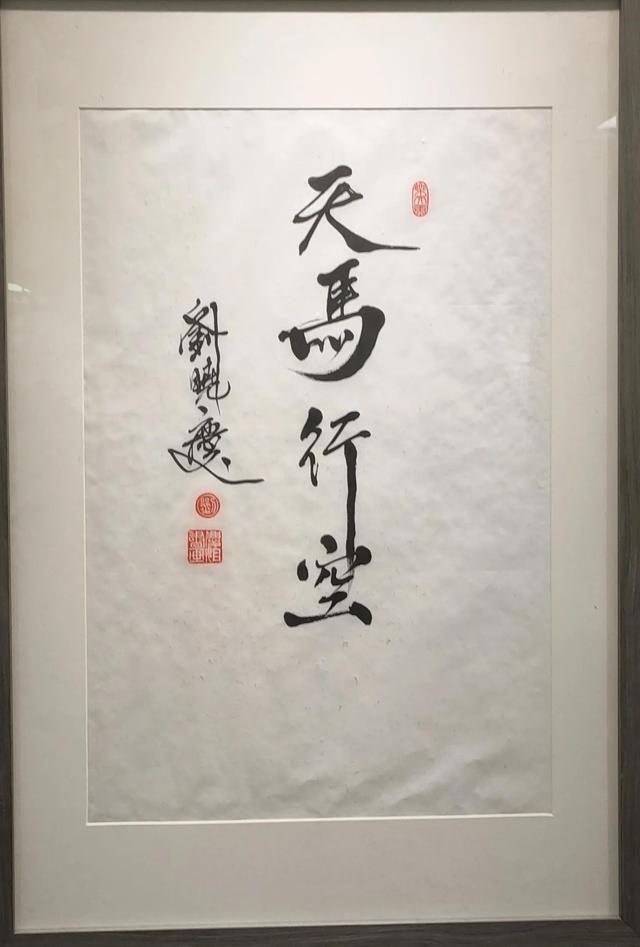 天馬行空
劉曉慶